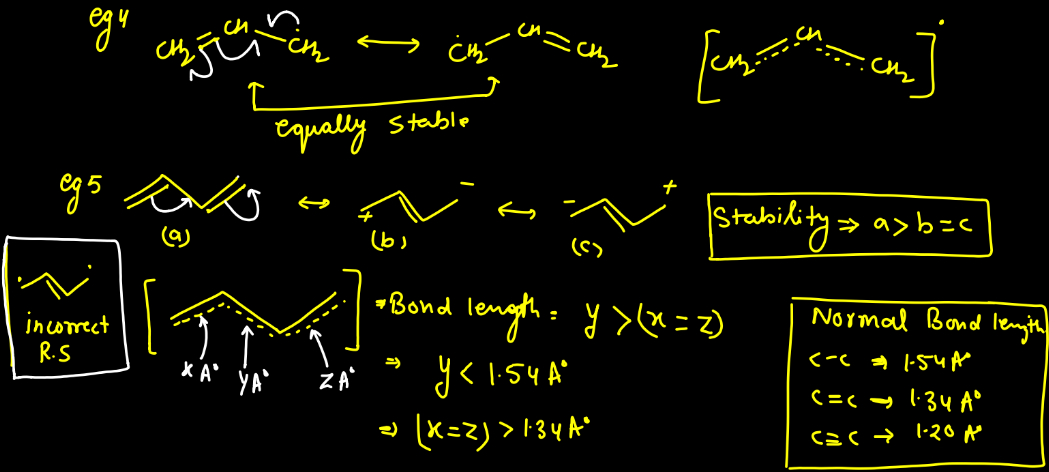 eg 4 CH₂=CH-ĊH₂ ↔ ĊH₂-CH=CH₂ [CH₂=CH-CH₂]•
equally stable
eg 5 ↔ + - ↔ - +
(a) (b) (c)
Stability ⇒ a > b = c
• •
incorrect
R.S
xA° yA° zA°
⇒ Bond length = y > (x = z)
⇒ y < 1.54 A°
⇒ (x = z) > 1.34 A°
Normal Bond length
C-C → 1.54 A°
C=C → 1.34 A°
C≡C → 1.20 A°